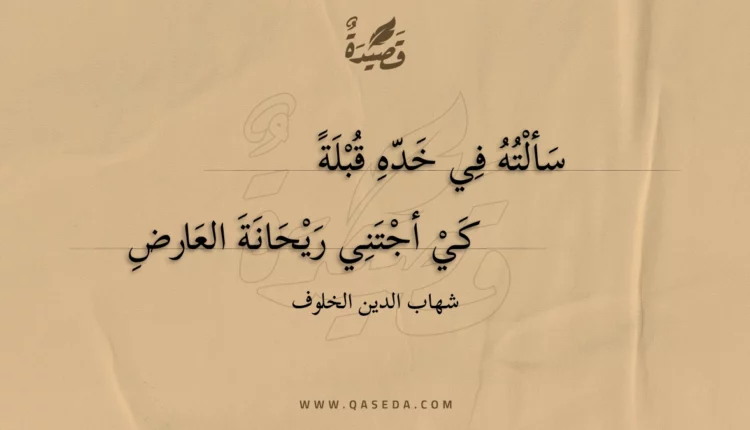 قَصِيْدَةٌ
سَألْتُهُ فِي خَدّهِ قُبْلَةً
كَيْ أجْتَنِي رَيْحَانَةَ العَارضِ
شهاب الدين الخلوف
WWW.QASEDA.COM